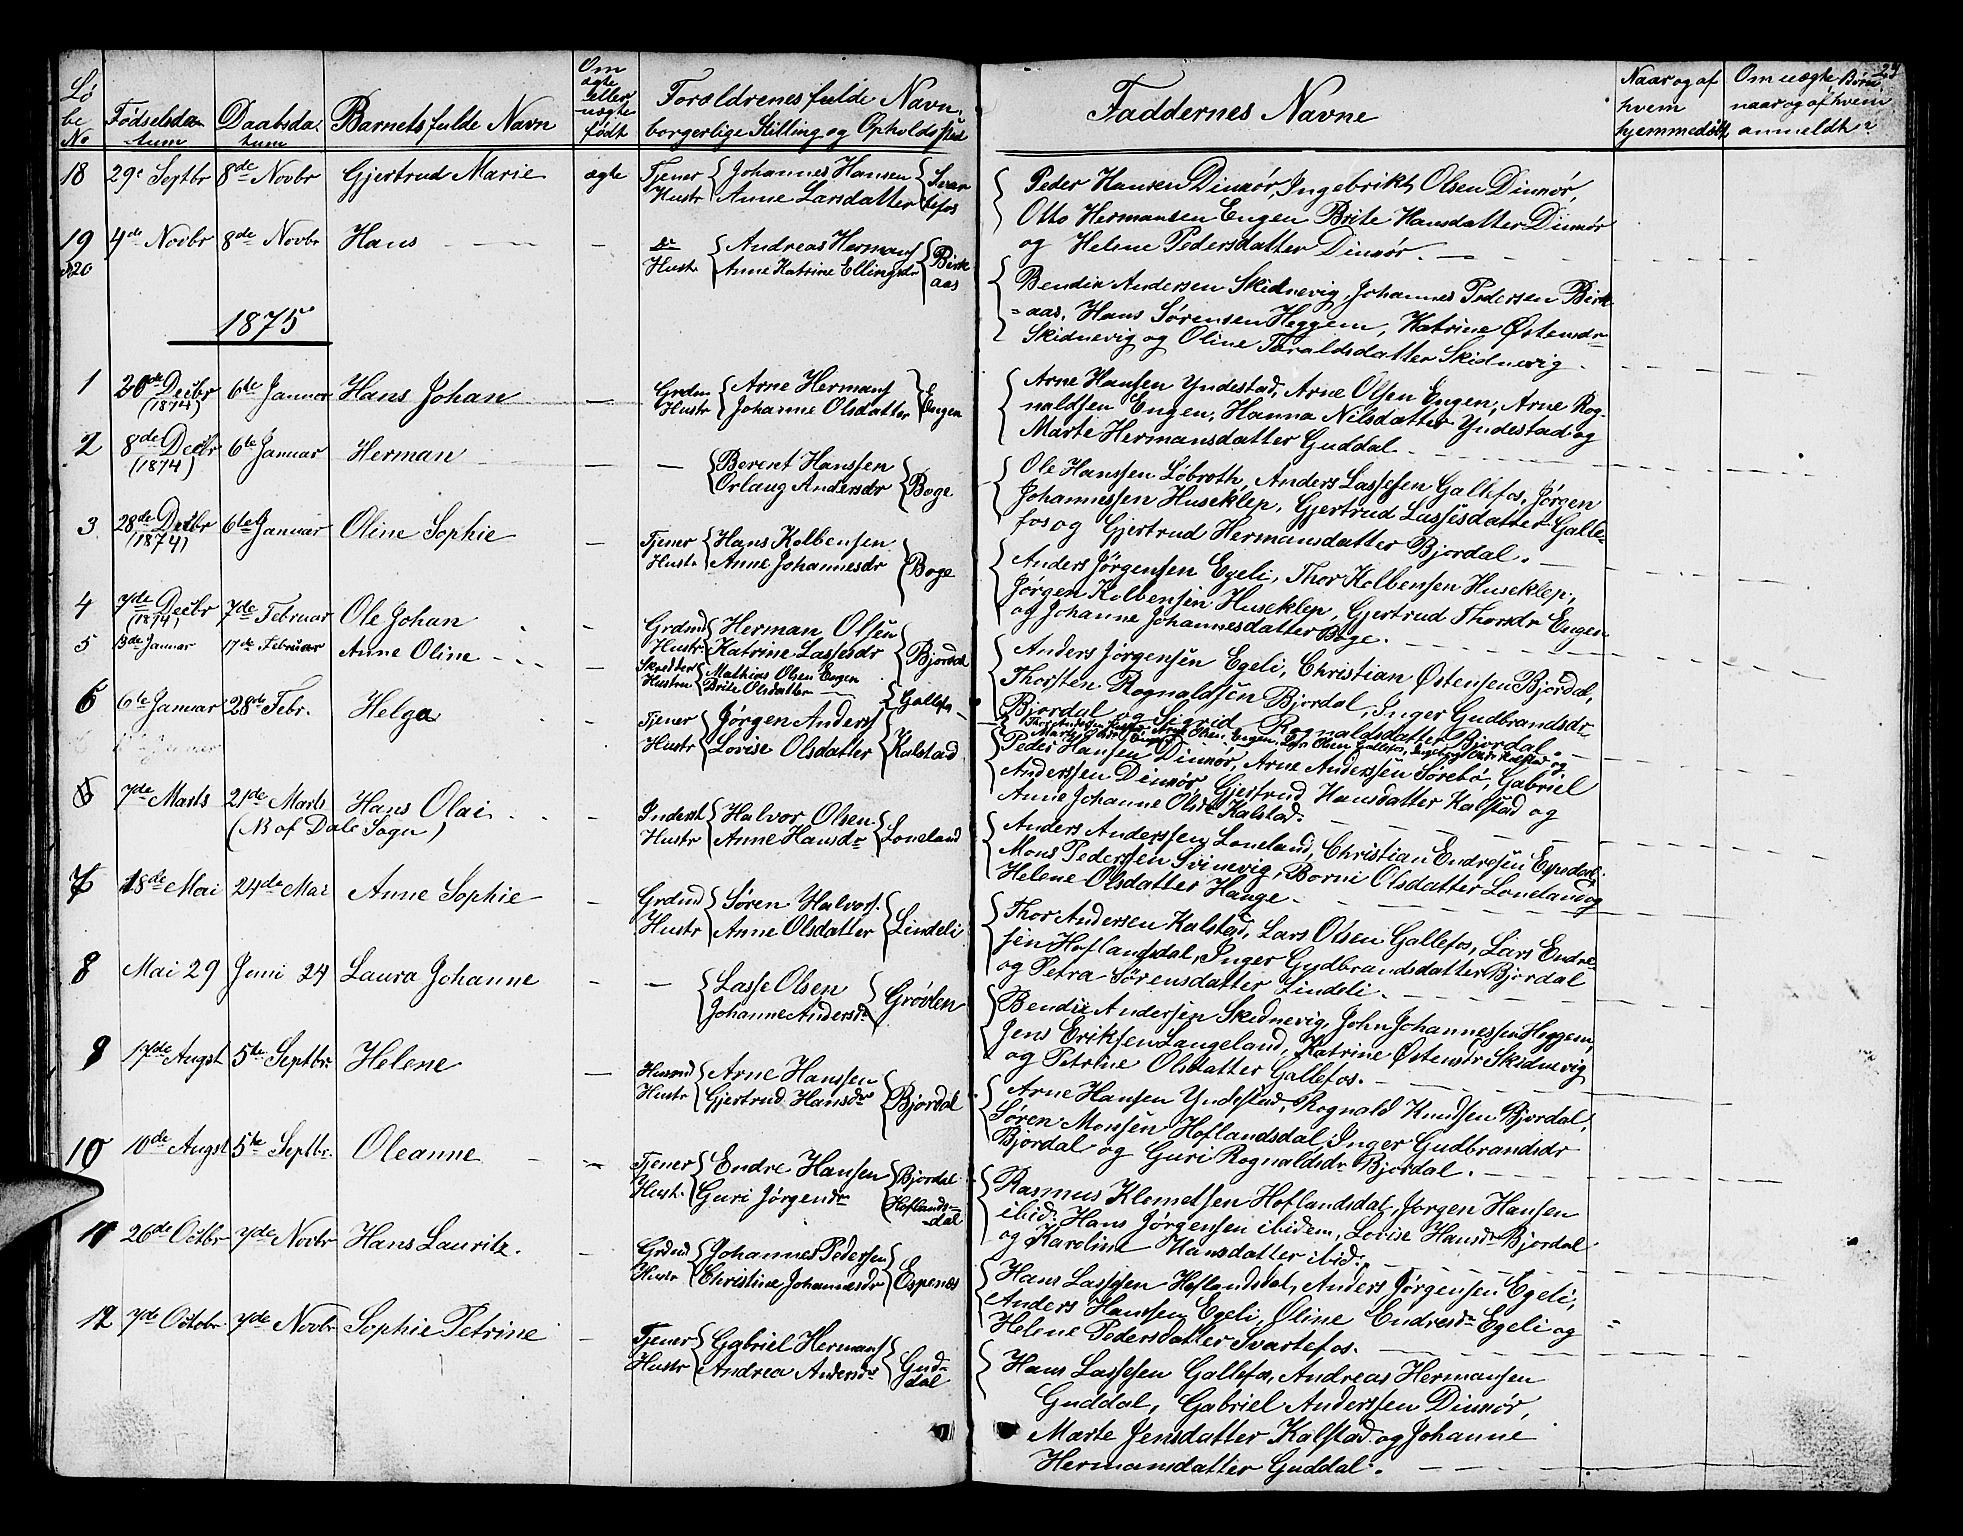 29
Løbe No
Fødselsdatum
Daabsdatum
Barnets fulde Navn
Om ægte eller uægte født
Forældrenes fulde Navn, borgerlige Stilling og Opholdssted
Faddernes Navne
Naar og af hvem hjemmedøbt
Om uægte Børn naar og af hvem anmeldt
18 29e Septbr 8de Novbr Gjertrud Marie ægte Tjener Hustr Johannes Hansen Anne Larsdatter Svartefos
Peder Hansen Dinmör, Ingebrikt Olsen Dinmör,
Otto Hermansen Engen Brite Hansdatter Dinmör
og Helene Pedersdatter Dinmör.
19 4de Novbr 8de Novbr Hans Hustr Andreas Hermans Anne Katrine Ellingsdr Birkaas
20
Bendix Andersen Skidnevig, Johannes Pedersen Birk-
aas, Hans Sørensen Heggem, Katrine Østensdr
Skidnevig og Oline Taraldsdatter Skidnevig
1875
1 20de Decbr (1874) 6te Januar Hans Johan Grdm Hustr Arne Hermans Johanne Olsdatter Engen
Arne Hansen Yndestad, Arne Olsen Engen, Arne Rog-
naldsen Engen, Hanna Nilsdatter Yndestad og
Marte Hermansdatter Guddal
2 8de Decbr (1874) 6te Januar Herman Berent Hanssen Orlaug Andersdr Boge
Ole Hanssen Løbroth, Anders Lassesen Gallefos, Jørgen
Johannessen Huseklep, Gjertrud Lassesdatter Galle-
fos og Gjertrud Hermansdatter Bjordal.
3 28de Decbr (1874) 6te Januar Oline Sophie Tjener Hustr Hans Kolbensen Anne Johannesdr Boge
Anders Jørgensen Egeli, Thor Kolbensen Huseklep,
Jørgen Kolbensen Huseklep, Gjertrud Thorsdr Engen
og Johanne Johannesdatter Boge.
4 7de Decbr (1874) 7de Februar Ole Johan Grdmd Hustr Herman Olsen Katrine Lassesdr Bjordal
Anders Jørgensen Egeli, Christian Østensen Bjordal,
Thorsten Rognaldsen Bjordal, Inger Gudbrandsdr
Bjordal og Sigrid Rognaldsdatter Bjordal.
5 13de Januar 17de Februar Anne Oline Skrædder Hustru Mathias Olsen Engen Brite Olsdatter Gallefos
6 6te Januar 28de Febr. Helga Tjener Hustr Jørgen Anders Lovise Olsdatter Kalstad
Peder Hansen Dinmör, Arne Anderssen Sørebø, Gabriel
Anderssen Dinmör, Gjertrud Hansdatter Kalstad og
Anne Johanne Olsdr Kalstad.
7de Marts 21de Marts Hans Olai Inderst Hustr Halvor Olsen Anne Hansdr Loneland
(NB af Dale Sogn)
Anders Anderssen Loneland, Christian Endresen Espedal,
Mons Pederssen Svinevig, Borni Olsdatter Loneland og
Helene Olsdatter Hauge.
7 18de Mai 24de Mai Anne Sophie Grdmd Hustr Søren Halvors. Anne Olsdatter Lindeli
Thor Andersen Kalstad, Lars Olsen Gallefos, Lars Endre-
sen Hoflandsdal, Inger Gudbrandsdatter Bjordal
og Petra Sørensdatter Lindeli.
8 Mai 29 Juni 24 Laura Johanne Lasse Olsen Johanne Andersdr Grøvlen
Bendix Andersen Skidnevig, John Johannessen Heggem,
Jens Eriksen Langeland, Katrine Østensdr Skidnevig
og Petrine Olsdatter Gallefos.
9 17de Augst 5te Septbr. Helene Husmd Hustr Arne Hanssen Gjertrud Hansdr Bjordal
Arne Hansen Yndestad, Rognald Knudsen Bjordal,
Søren Monsen Hoflandsdal, Inger Gudbrandsdr
Bjordal og Guri Rognaldsdr Bjordal.
10 10de Augst 5te Septbr. Oleanne Tjener Hustr. Endre Hansen Guri Jørgensdr Bjordal Hoflandsdal
Rasmus Klemetsen Hoflandsdal, Jørgen Hansen
ibid. Hans Jørgensen ibidem, Lovise Hansdr Bjordal
og Karoline Hansdatter ibid.
11 26de Octbr 7de Novbr Hans Lauritz. Grdmd Hustr Johannes Pedersen Christine Johannesdr Espenes
Hans Lassesen Hoflandsdal, Anders Jørgensen Egeli,
Anders Hanssen Egeli, Oline Endresdr Egeli og
Helene Pedersdatter Svartefos.
12 7de Octobr 7de Novbr Sophie Petrine Tjener Hustr Gabriel Hermans Andrea Andersdr Guddal
Hans Lassesen Gallefos, Andreas Hermansen
Guddal, Gabriel Anderssen Dinmör,
Marte Jensdatter Kalstad og Johanne
Hermansdatter Guddal.